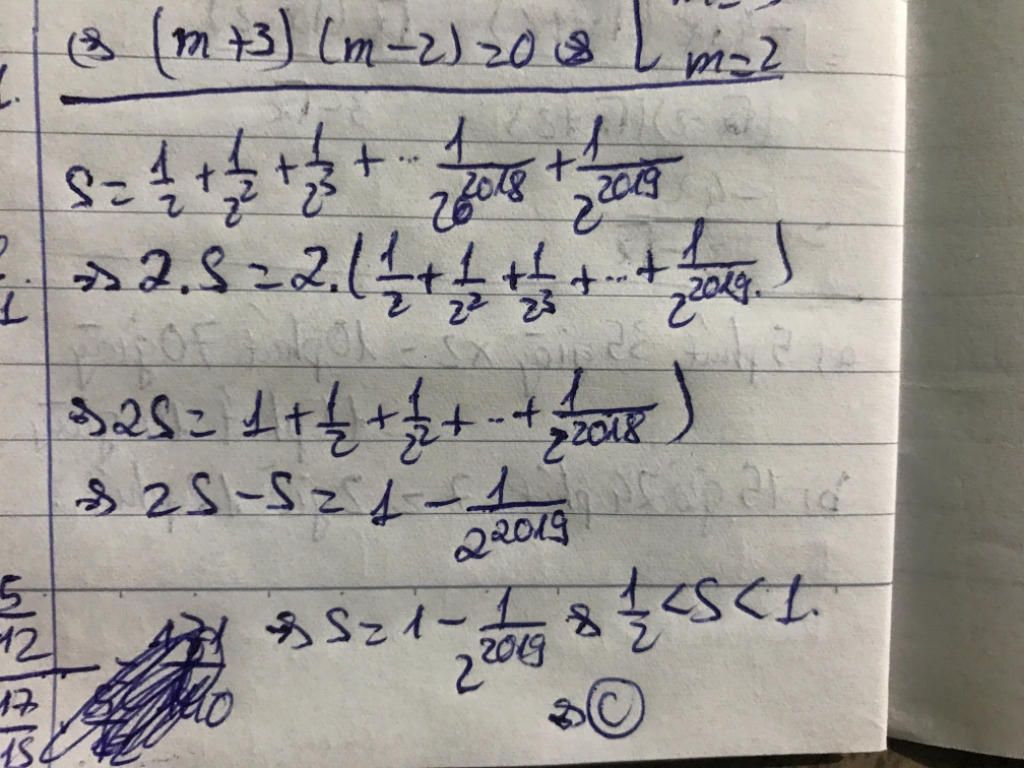 ⇔ (m+3)(m-2)=0 ⇔ [ m=2
S = 1/2 + 1/2^2 + 1/2^3 + ... 1/2^2018 + 1/2^2019
⇒ 2.S = 2.(1/2 + 1/2^2 + 1/2^3 + ... + 1/2^2019.)
⇒ 2S = 1 + 1/2 + 1/2^2 + ... + 1/2^2018)
⇒ 2S - S = 1 - 1/2^2019
⇒ S = 1 - 1/2^2019 ⇒ 1/2 < S < 1.
⇒ C
12
17
15